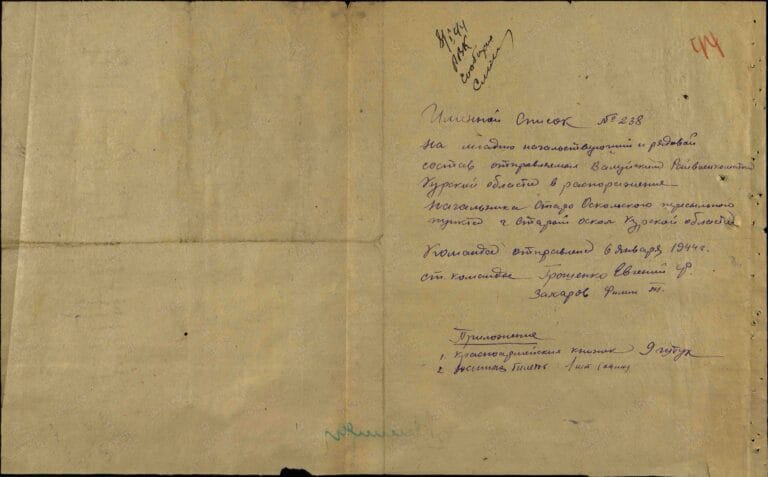 44
8/I 44
РВК
сообщено
Именной Список № 238
на младшо начальствующий и рядовой
состав отправляемой Валуйским Райвоенкоматом
Курской области в распоряжение
Начальника Старо Оскольского пересыльного
пункта г Старой оскол Курской области
Команда отправлена 6 января 1944 г.
ст. команды Грошенко Евгений Ф.
Захаров
Приложение
1, Красноармейских книжек 9 штук
2 билеты 1 шт (один)